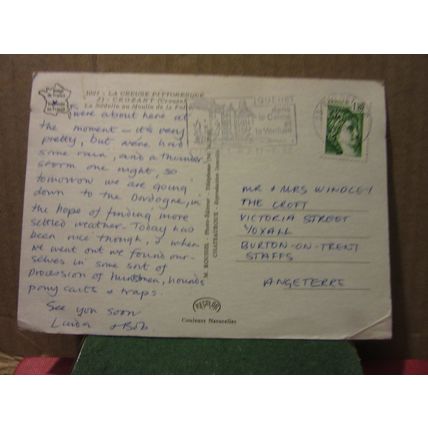 LA CREUSE PITTORESQUE
CROZANT (Creuse)
La Sédelle au Moulin de la Folie
We're about here at
the moment – it's very
pretty, but we've had
some rain, and a thunder
storm one night, so
tomorrow we are going
down to the Dordogne, in
the hope of finding more
settled weather. Today had
been nice though, & when
we went out we found our-
selves in some sort of
procession of huntsmen, hounds
pony carts & traps.
See you soon
Luisa + Bob
MR + MRS WINDLEY
THE CROFT
VICTORIA STREET
YOXALL
BURTON-ON-TRENT
STAFFS
ANGETERRE
Couleurs Naturelles
CHATEAUROUX - Reproduction interdite